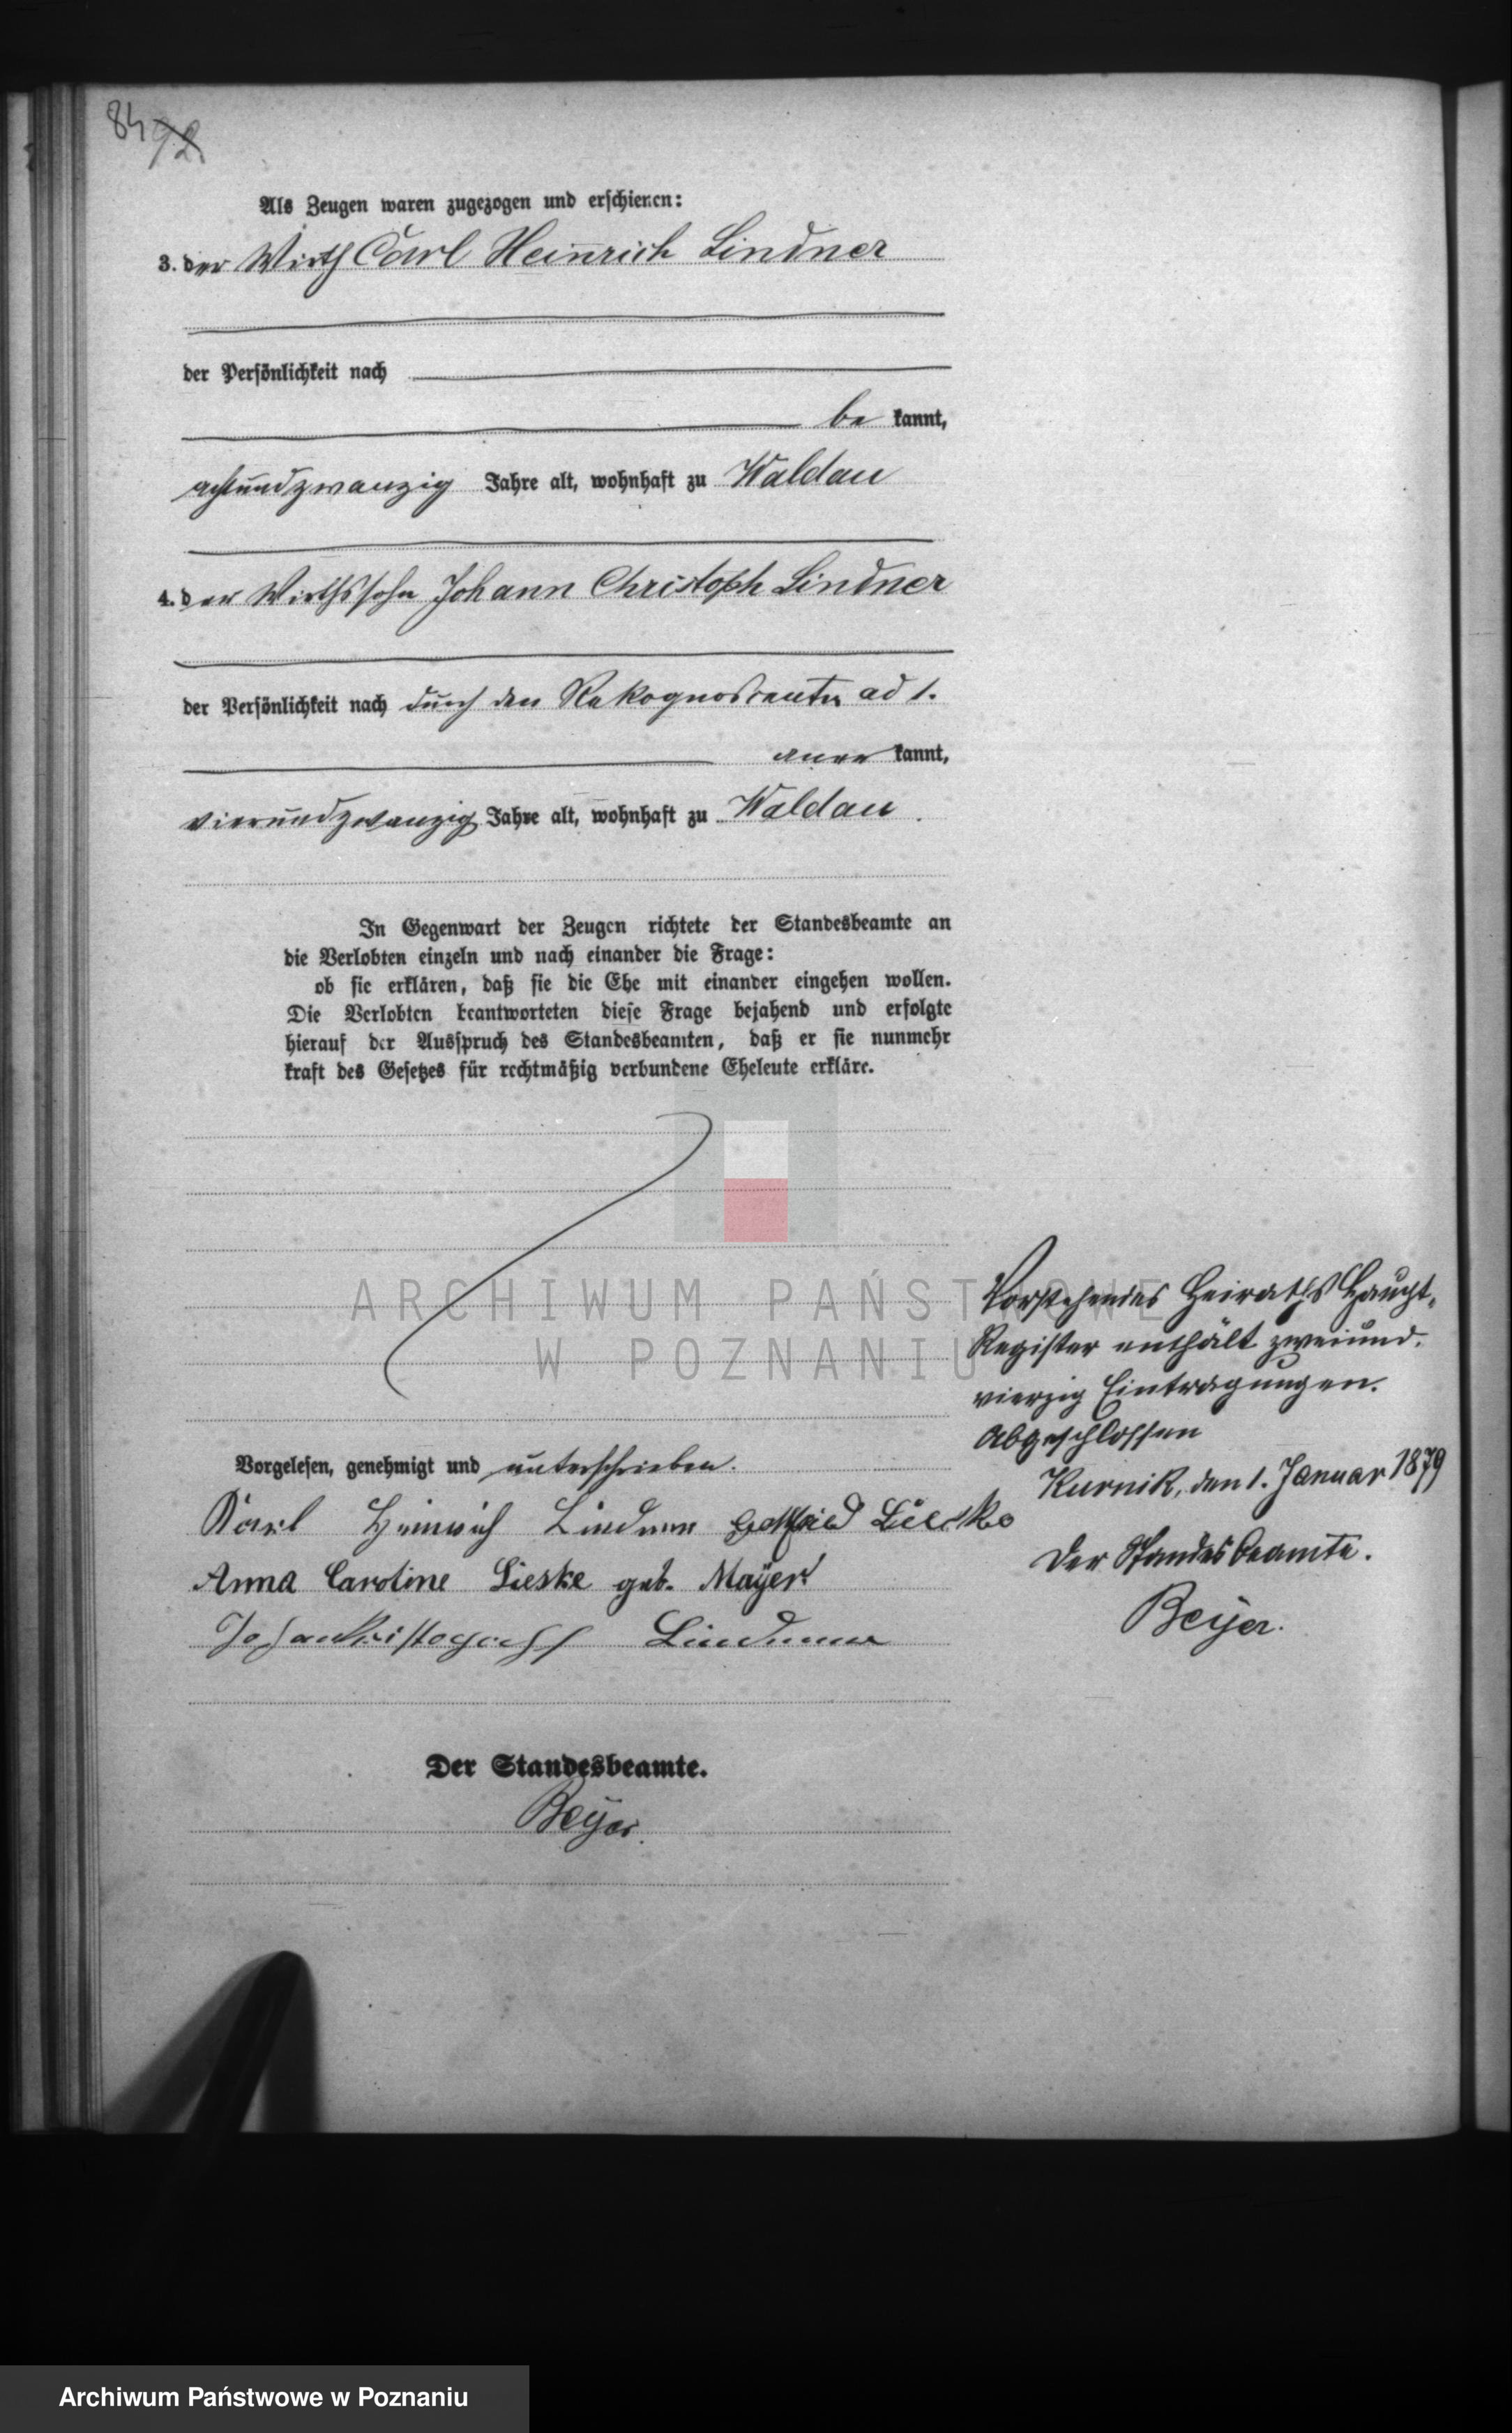 84 92
Als Zeugen waren zugezogen und erschienen:
3. der Wirth Carl Heinrich Lindner
der Persönlichkeit nach
be kannt,
achtundzwanzig Jahre alt, wohnhaft zu Waldau
4. der Wirthssohn Johann Christoph Lindner
der Persönlichkeit nach durch den Rekognoscenten ad 1.
aner kannt,
vierundzwanzig Jahre alt, wohnhaft zu Waldau.
In Gegenwart der Zeugen richtete der Standesbeamte an
die Verlobten einzeln und nach einander die Frage:
ob sie erklären, daß sie die Ehe mit einander eingehen wollen.
Die Verlobten beantworteten diese Frage bejahend und erfolgte
hierauf der Ausspruch des Standesbeamten, daß er sie nunmehr
kraft des Gesetzes für rechtmäßig verbundene Eheleute erkläre.
ARCHIWUM PAŃSTWOWE
W POZNANIU
Vorgelesen, genehmigt und unterschrieben.
Karl Heinrich Lindner Gottfried Lieske
Anna Caroline Lieske geb. Mayer
Lindner
Der Standesbeamte.
Beyer.
Vorstehendes Heiraths Haupt-
Register enthält zweiund-
vierzig Eintragungen.
Abgeschlossen
Kurnik, den 1. Januar 1879
Der Standesbeamte.
Beyer.
Archiwum Państwowe w Poznaniu